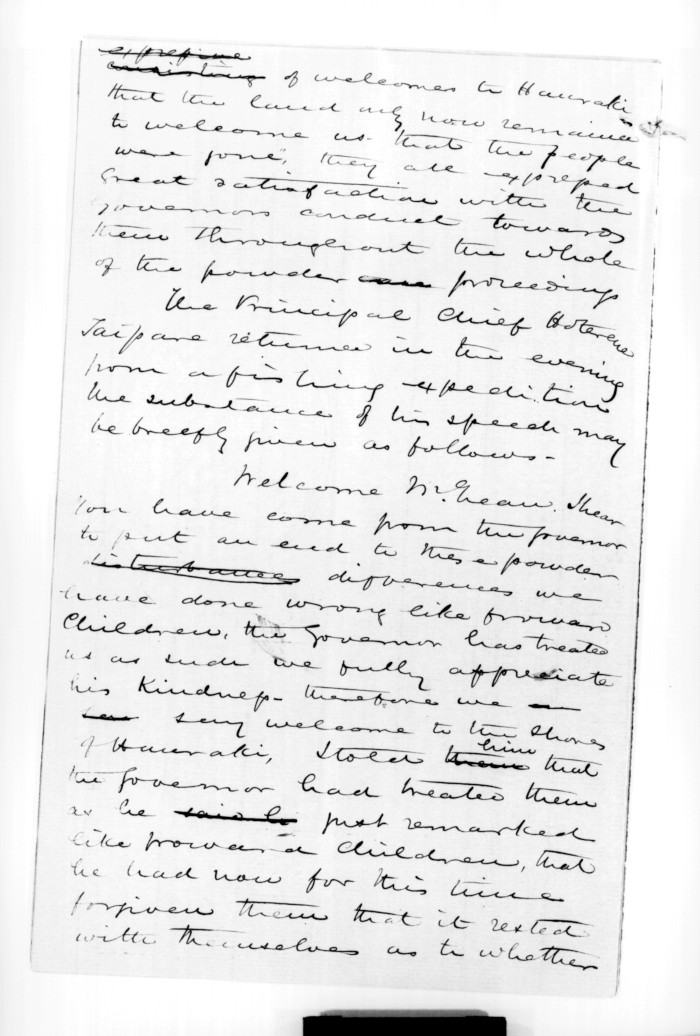 expressive
consisting of welcomes to Hauraki
that the land only now remains
to welcome us that the people
were gone", they all expressed
great satisfaction with the
Governors conduct towards
them throughout the whole
of the powder case proceedings
The Principal Chief Hoterene
Taipare returned in the evening
from a fishing expedition
the substance of his speech may
be breefly given as follows-
Welcome McLean. I hear
You have come from the Governor
to put an end to these powder
disturbances differences we
have done wrong like froward
Children, the Governor has treated
us as such we fully appreciate
his Kindness- therefore we
say welcome to the Shores
of Hauraki, I told them him that
the Governor had treated them
as he said h just remarked
like froward Children, that
he had now for this time
forgiven them that it rested
with themselves as to whether